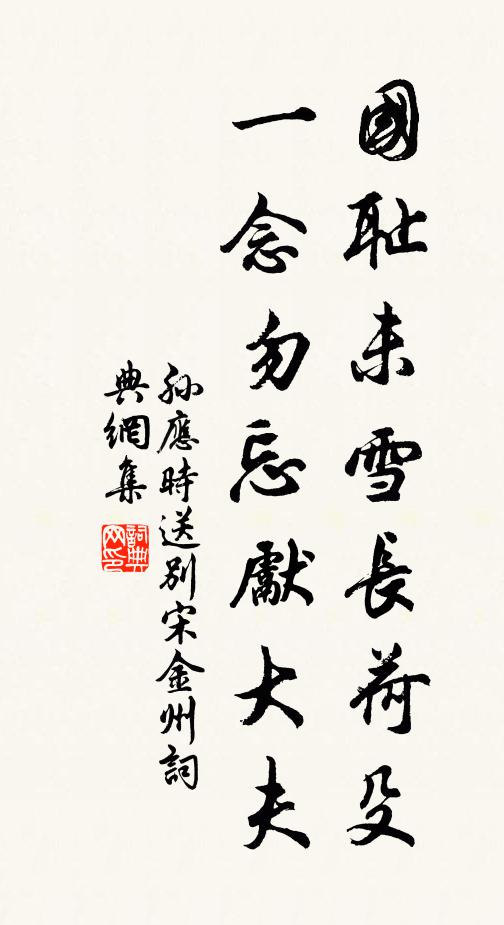 國耻未雪長荷殳
一念勿忘獻大夫
孫應時送别宋金州詞
典網集
詞典網印